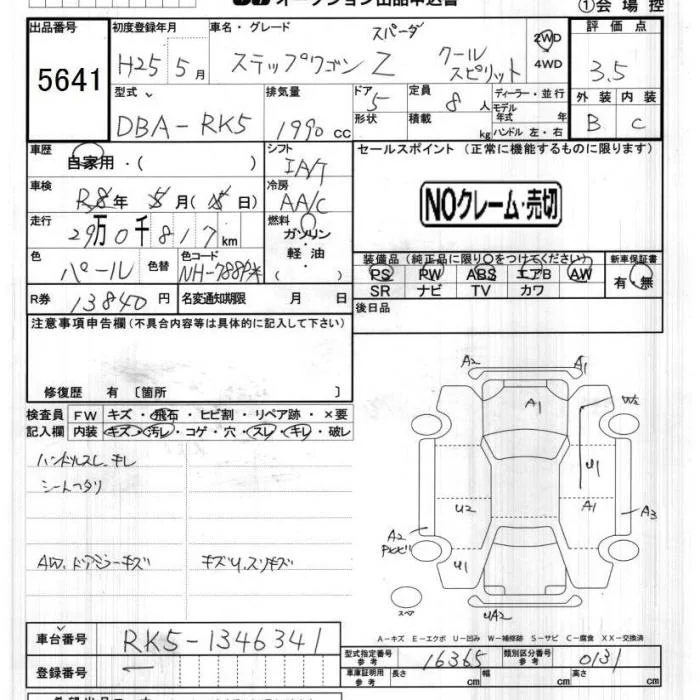 オークション出品申込書
①会場控
出品番号
5641
初度登録年月
H25 5月
車名・グレード
ステップワゴン Z スパーダ クールスピリット
2WD
4WD
評価点
3.5
型式
DBA-RK5
排気量
1990 cc
ドア
5
形状
定員
8人
積載
kg
ディーラー・並行
モデル年式 年
ハンドル 左・右
外装
B
内装
C
車歴
自家用・( )
シフト
IA/T
セールスポイント (正常に機能するものに限ります)
NOクレーム・売切
車検
R8年 5月( 日)
冷房
AA/C
走行
29万0千817km
燃料
ガソリン
軽油
( )
色
パール
色替
色コード
NH-788P
装備品(純正品に限り○をつけてください)
PS PW ABS エアB AW
SR ナビ TV カワ
新車保証書
有・無
R券
13840円
名変通知期限 月 日
後日品
注意事項申告欄(不具合内容等は具体的に記入して下さい)
修復歴 有 [箇所 ]
検査員記入欄
FW キズ・飛石・ヒビ割・リペア跡・×要
内装 キズ・汚レ・コゲ・穴・スレ・キレ・破レ
ハンドルスレ.キレ
シートヘタリ
AW.ドアミラーキズ
キズU.スリキズ
A2
A1
A1
W2
U1
U2
A1
A3
A2
U1
UA2
スペア
A-キズ E-エクボ U-凹み W-補修跡 S-サビ C-腐食 XX-交換済
車台番号
RK5-1346341
登録番号
型式指定番号
参考
16365
類別区分番号
参考
0131
車庫証明用
参考
長さ cm
幅 cm
高さ cm